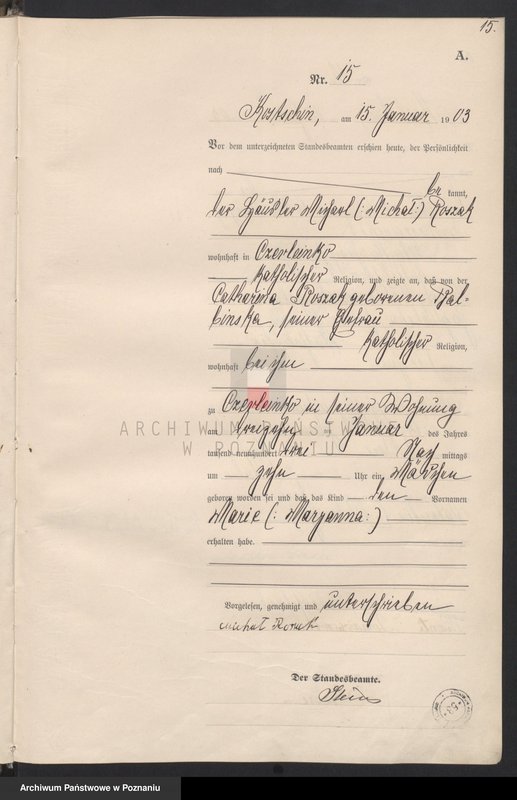 15.
A.
Nr. 15
Kostschin, am 15. Januar 1903
Vor dem unterzeichneten Standesbeamten erschien heute, der Persönlichkeit
nach
be kannt,
der Häusler Michael (: Michał :) Roszak
wohnhaft in Czerleinko
katholischer Religion, und zeigte an, daß von der
Catharina Roszak geborenen
seiner Ehefrau
katholischer Religion,
wohnhaft bei ihm
zu Czerleinko in seiner Wohnung
am dreizehnten Januar des Jahres
tausend neunhundert drei Nach mittags
um zehn Uhr ein Mädchen
geboren worden sei und daß das Kind den Vornamen
Marie (: Maryanna :)
erhalten habe.
Vorgelesen, genehmigt und unterschrieben
Michał Roszak
Der Standesbeamte.
ARCHIWUM PAŃSTWOWE
W POZNANIU
Archiwum Państwowe w Poznaniu